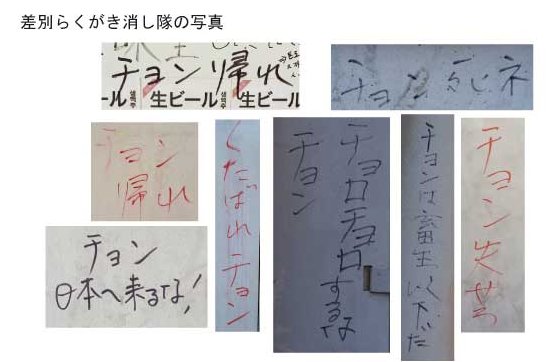 差別らくがき消し隊の写真
チョン帰れ
ール 生ビール 생맥주 生ビール 생맥주
チョン 死ネ
チョン
帰れ
くたばれチョン
チョロチョロするな
チョン
チョンは畜生以下だ
チョン失せろ
チョン
日本へ来るな!